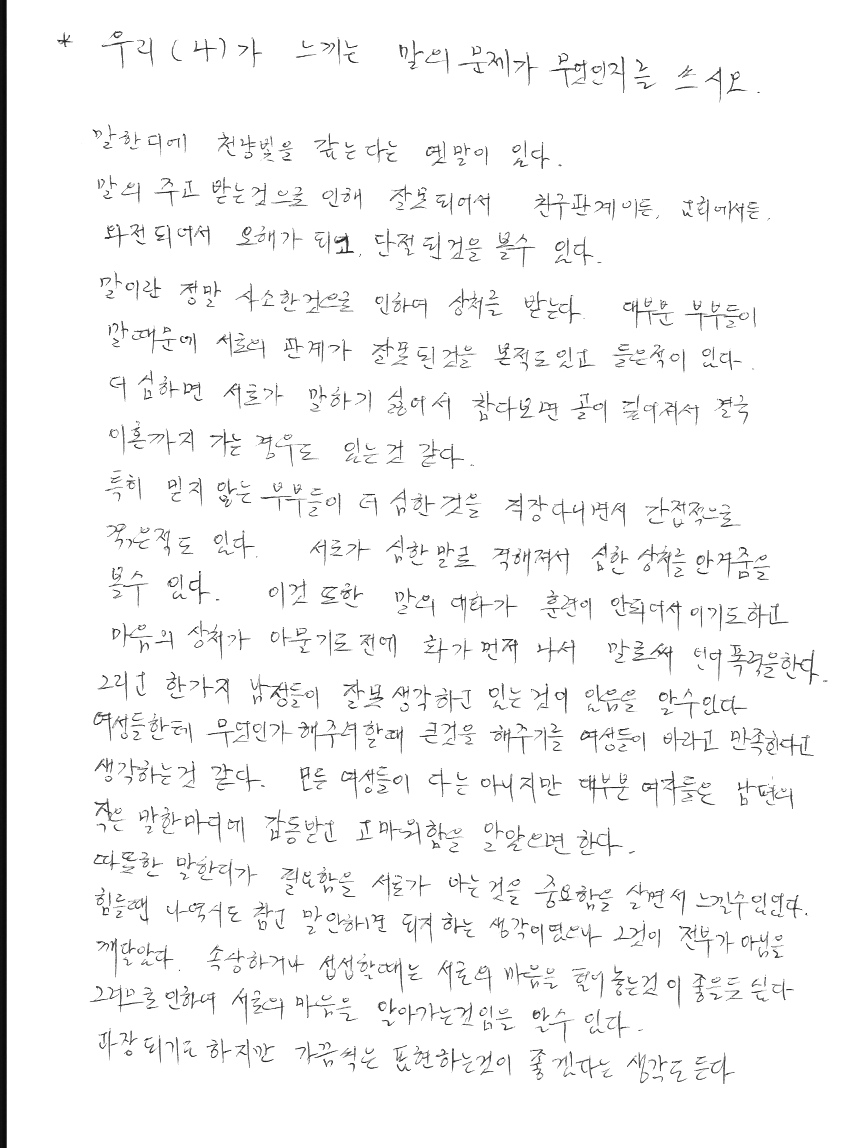 * 우리(나)가 느끼는 말의 문제가 무엇인지를 쓰시오.
말한디에 천냥빚을 갚는다는 옛말이 있다.
말의 주고 받는것으로 인해 잘못되어서 친구관계이든, 교회에서든,
와전되어서 오해가 되고, 단절된것을 볼수 있다.
말이란 정말 사소한것으로 인하여 상처를 받는다. 대부분 부부들이
말때문에 서로의 관계가 잘못된것을 본적도있고 들은적이 있다.
더 심하면 서로가 말하기 싫어서 참다보면 골이 깊어져서 결국
이혼까지 가는 경우도 있는것 같다.
특히 믿지 않는 부부들이 더 심한것을 직장다니면서 간접적으로
겪은적도 있다. 서로가 심한말로 격해져서 심한 상처를 안겨줌을
볼수 있다. 이것 또한 말의 대화가 훈련이 안되어서이기도하고
마음의 상처가 아물기도전에 화가 먼저 나서 말로써 언어폭력을한다.
그리고 한가지 남정들이 잘못생각하고 있는것이 있음을 알수있다
여성들한테 무엇인가 해주려할때 큰것을 해주기를 여성들이 바라고 만족한다고
생각하는것 같다. 모든 여성들이 다는 아니지만 대부분 여자들은 남편의
작은 말한마디에 감동받고 고마워함을 알았으면 한다.
따뜻한 말한디가 필요함을 서로가 아는것을 중요함을 살면서 느낄수있었다.
힘들때 나역시도 참고 말안하면 되지 하는 생각이였으나 그것이 전부가 아님을
깨달았다. 속상하거나 섭섭할때는 서로의 마음을 털어놓는것이 좋을듯 싶다
그러므로인하여 서로의 마음을 알아가는것임을 알수 있다.
과장되기도 하지만 가끔씩은 표현하는것이 좋겠다는 생각도 든다